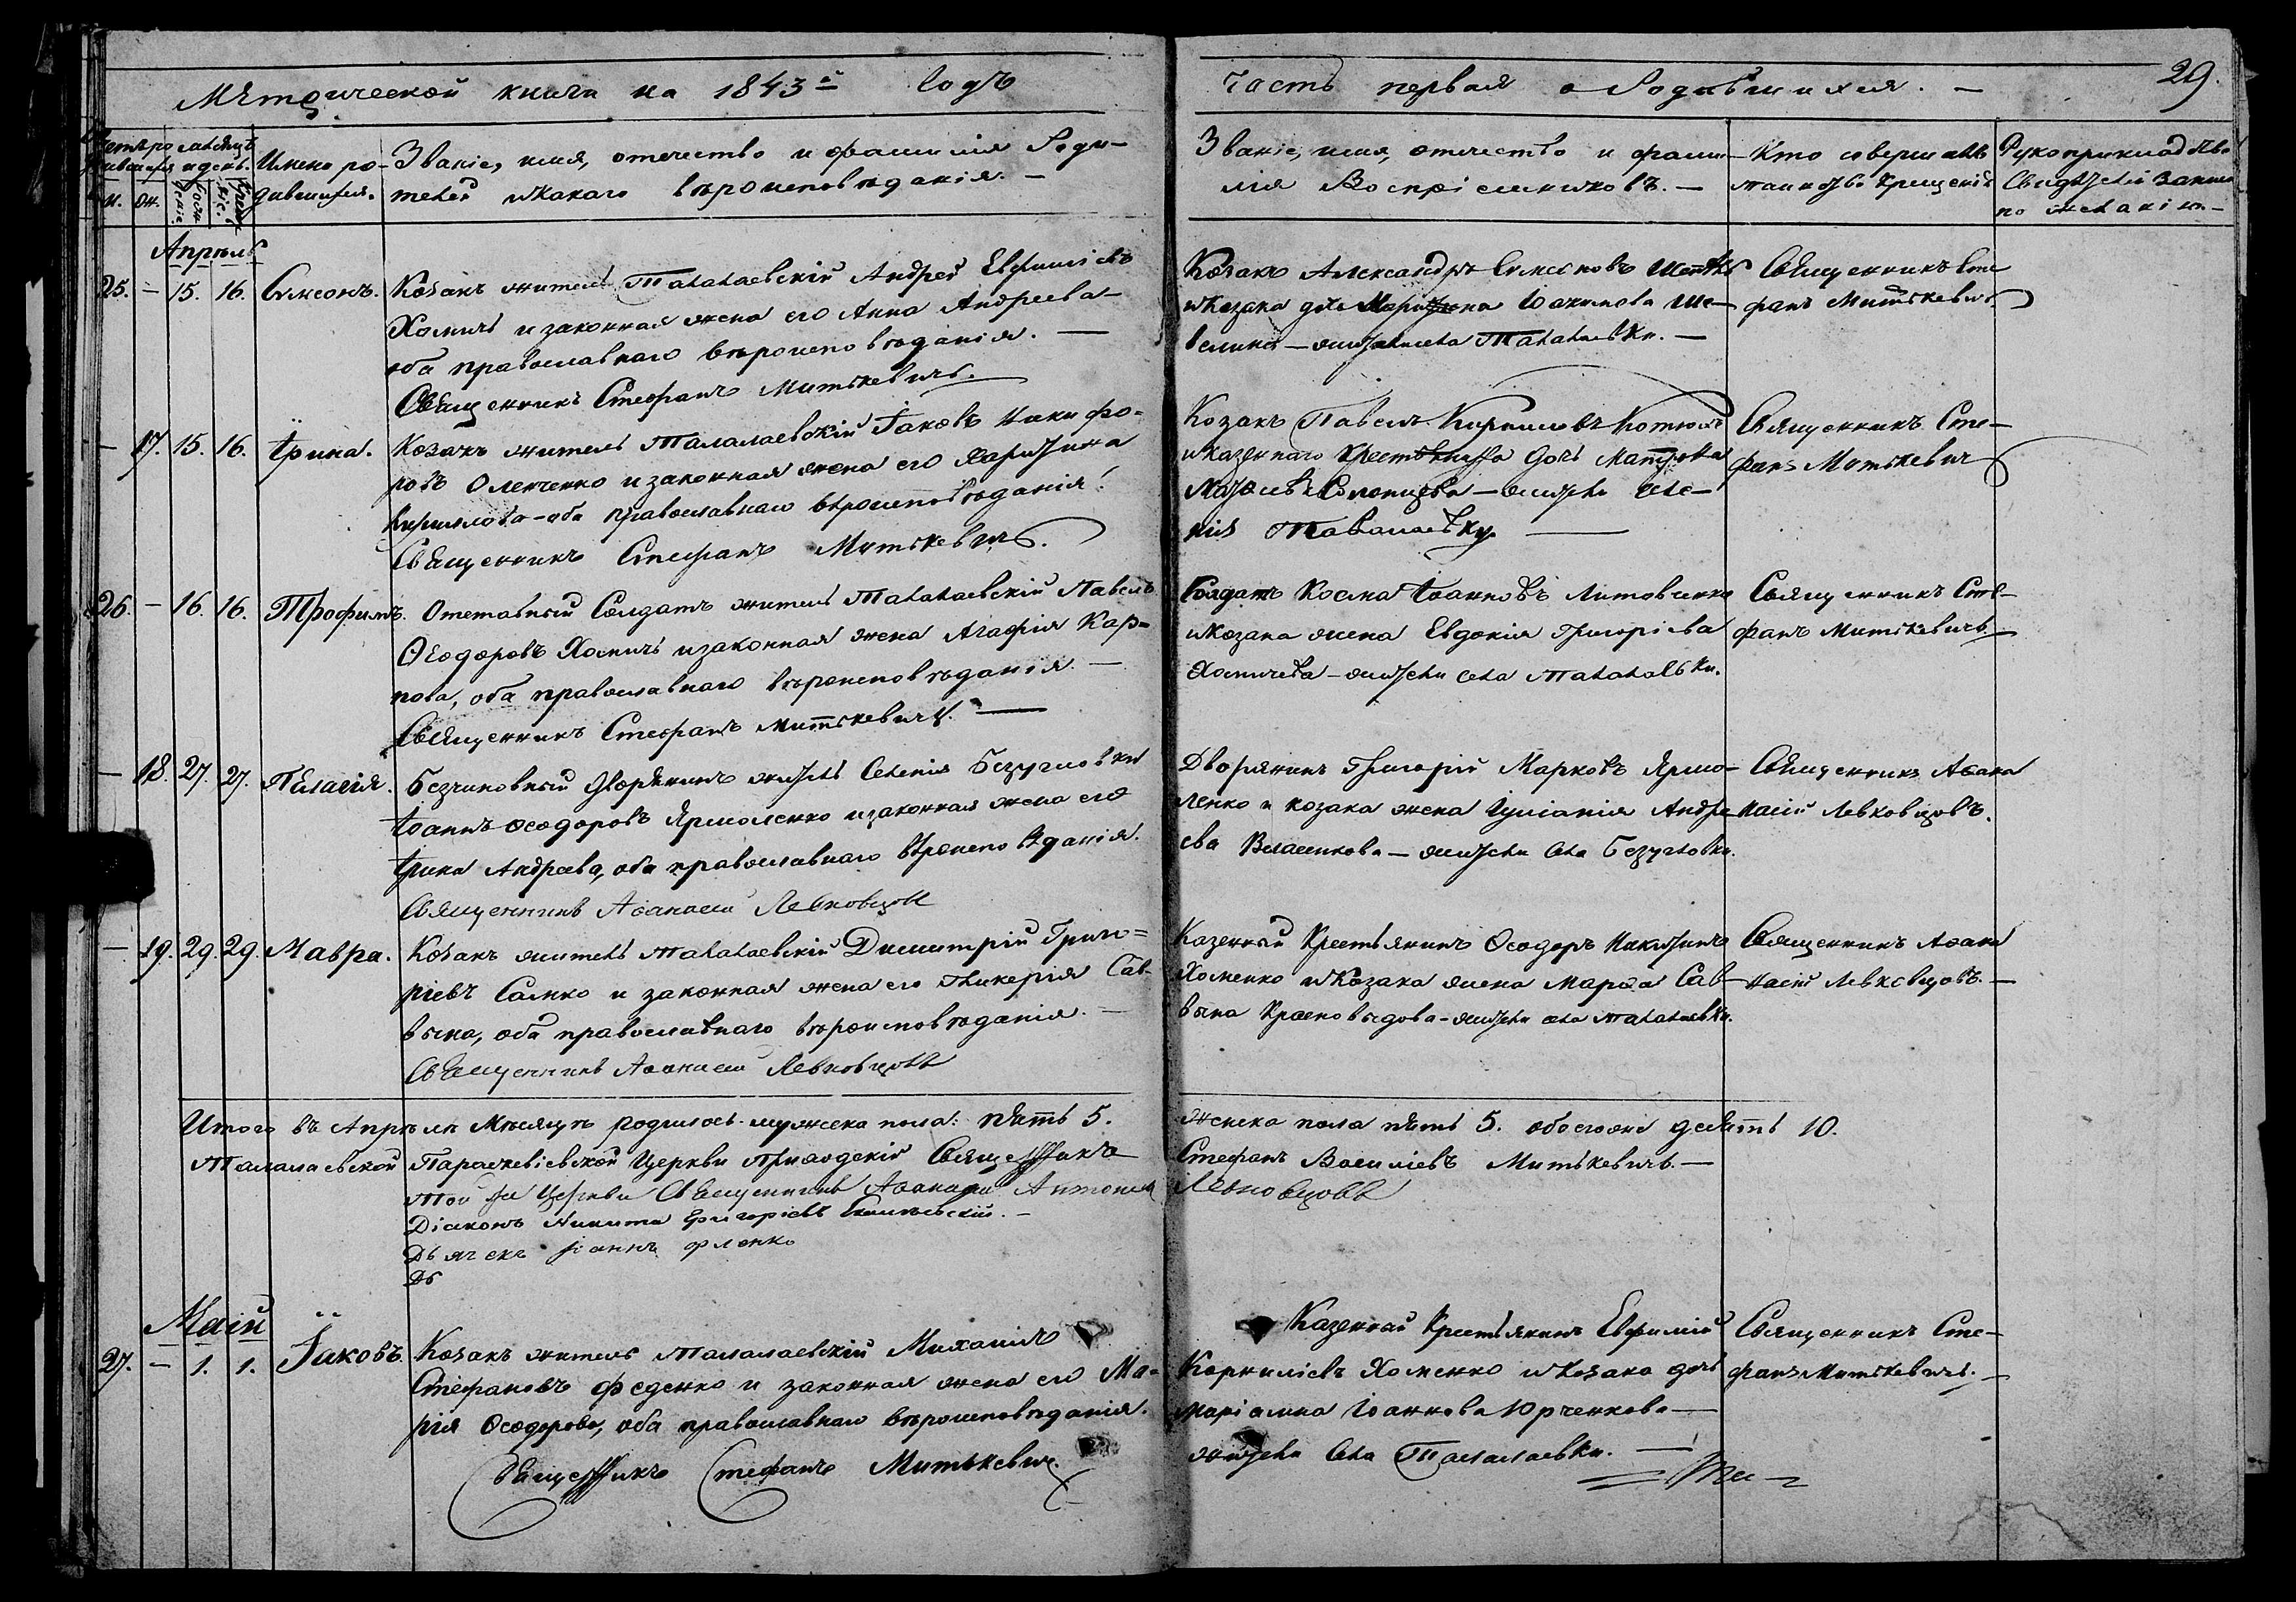 Метрической книги на 1843й годъ
Часть первая о Родившихся. —
29.
Имена ро-
дившихся.
Званіе, имя, отечество и фамилія Роди-
телей и какаго вѣроисповѣданія. —
Званіе, имя, отчество и фами-
лія Воспріемниковъ. —
Кто совершалъ
таинство Крещенія
Рукоприкладство
Свидѣтелей записи
по желанію. —
Апрѣль
25. — 15. 16. Симеонъ.
Козакъ житель Талалаевскій Андрей Евфиміевъ
Хомичь и законная жена его Анна Андреева —
оба православнаго вѣроисповѣданія. —
Священникъ Стефанъ Митькевичь.
Козакъ Александръ Симеоновъ
и козака дочь Іоакимова Ше-
велика — жители села Талалаевки. —
Священникъ Сте
фанъ Митькевичь
— 17. 15. 16. Ірина.
Козакъ житель Талалаевскій Іаковъ Никифо-
ровъ Оленченко и законная жена его Харитина
Кириллова — оба православнаго вѣроисповѣданія.
Священникъ Стефанъ Митькевичь.
Козакъ Павелъ Корниловъ
и казеннаго Крестьянина дочь Матрона
— жители селе-
нія Талалаевки. —
Священникъ Сте-
фанъ Митькевичь
26. — 16. 16. Трофимъ.
Отставный Солдатъ житель Талалаевскій Павелъ
Ѳеодоровъ Хомичь и законная жена Агафія Кар-
пова, оба православнаго вѣроисповѣданія. —
Священникъ Стефанъ Митькевичь. —
Солдатъ Косма Іоанновъ Литовченко
и козака жена Евдокія Григоріева
Хомичева — жители села Талалаевки.
Священникъ Сте-
фанъ Митькевичь.
— 18. 27. 27. Пелагія.
Безчиновный дворянинъ житель Селенія Безугловки
Іоаннъ Ѳеодоровъ Ярмоленко и законная жена его
Ірина Андреева, оба православнаго вѣроисповѣданія.
Священникъ Аѳанасій Левковцовъ
Дворянинъ Григорій Марковъ Ярмо-
ленко и козака жена Іуліанія Андре-
ева Власенкова — жители села Безугловки.
Священникъ Аѳана
насій Левковцовъ.
— 19. 29. 29. Мавра.
Козакъ житель Талалаевскій Димитрій Григо-
ріевъ Салко и законная жена его Гликерія Сав-
вына, оба православнаго вѣроисповѣданія. —
Священникъ Аѳанасій Левковцовъ
Казенный Крестьянинъ Ѳеодоръ Никитинъ
Хоменко и Козака жена Марѳа Сав-
вына Красновыдова — жители села Талалаевки.
Священникъ Аѳана
насій Левковцовъ. —
Итого въ Апрѣлѣ Мѣсяцѣ родилось мужеска пола: пять 5.
женска пола пять 5. обоегоже десять 10.
Талалаевской Параскевіевской Церкви Приходскій Священникъ
Стефанъ Василіевъ Митькевичь. —
Той же Церкви Священникъ Аѳанасій Антоніевъ
Левковцовъ
Діаконъ Никита Григоріевъ
Дьячекъ Іоаннъ
Дь
Маій
27. — 1. 1. Іаковъ.
Козакъ житель Талалаевскій Михаилъ
Стефановъ Феденко и законная жена его Ма-
рія Ѳеодорова, оба православнаго вѣроисповѣданія.
Священникъ Стефанъ Митькевичь.
Казенный Крестьянинъ Евфимій
Корниліевъ Хоменко и Козака дочь
Маріамна Іоаннова Юрченкова —
жители Села Талалаевки. —
Священникъ Сте-
фанъ Митькевичь. —